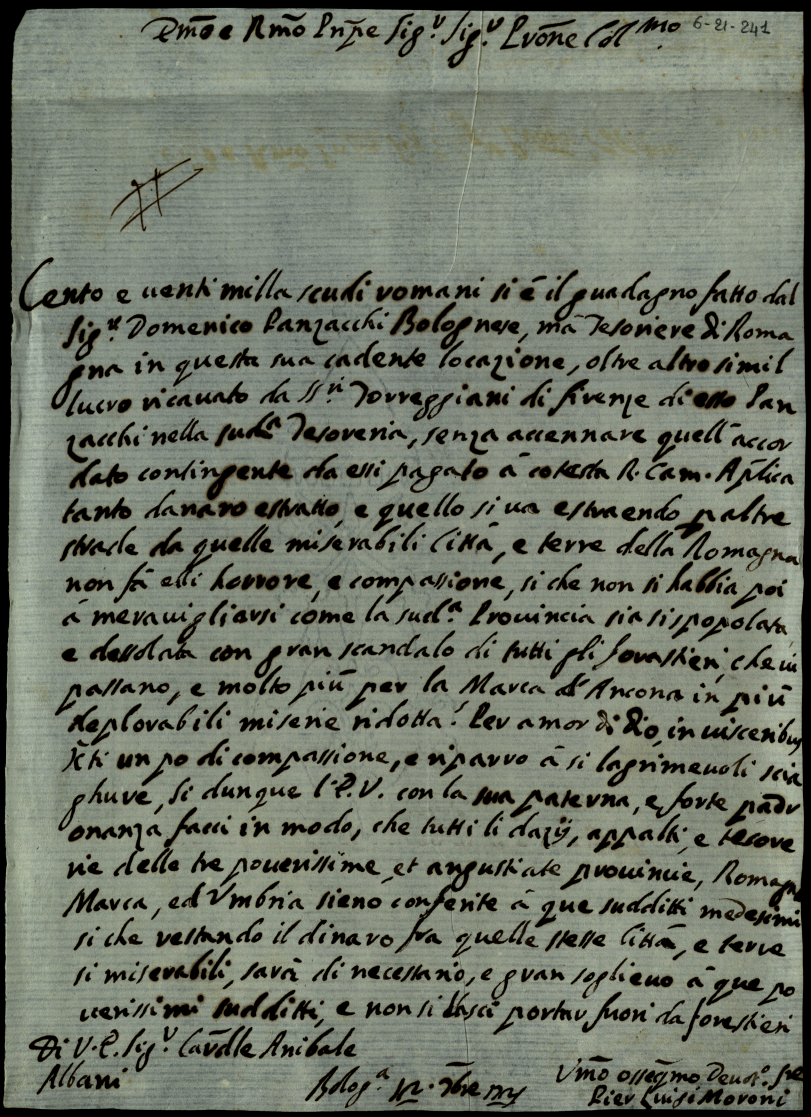 Emo e Rmo Prpe Sigr Sigr Prone Colmo 6-21-241
Cento e venti milla scudi romani si è il guadagno fatto dal
Sigr Domenico Panzacchi Bolognese, mà Tesoriere di Roma
gna in questa sua cadente locazione, oltre altro simil
lucro ricavato da SSri Torreggiani di firenze di esso Pan
zacchi nella sudta Tesoreria, senza accennare quell'accor
dato contingente da essi pagato à cotesta R. Cam. Aplica
tanto danaro estratto, e quello si va estraendo p altre
strade da quelle miserabili Città, e terre della Romagna
non fà elli horrore, e compassione, si che non si habbia poi
à meravigliarsi come la suda Provincia sia si spopolata
e dessolata con gran scandalo di tutti gli forastieri, che ui
passano, e molto più per la Marca d'Ancona in più
deplorabili miserie ridotta! Per amor di Dio, in visceribus
Xti un po di compassione, e riparro à si lagrimevoli scia
ghure, Si dunque l'E.V. con la sua paterna, e forte padr
onanza facci in modo, che tutti li dazij, appalti, e tesore
rie delle tre poverissime, et angustiate provincie, Romagna
Marca, ed Umbria sieno conferite à que sudditti medesimi
si che restando il dinaro fra quelle stesse Città, e terre
si miserabili, sarà di necessario, e gran soglievo à que po
verissimi sudditti, e non si lasci portar fuori da forestieri
Di V.E. Sigr Cardle Anibale
Albani
Bologa 12. Xbre
Umo osseqmo Devoto Sre
Pier Luigi Moroni